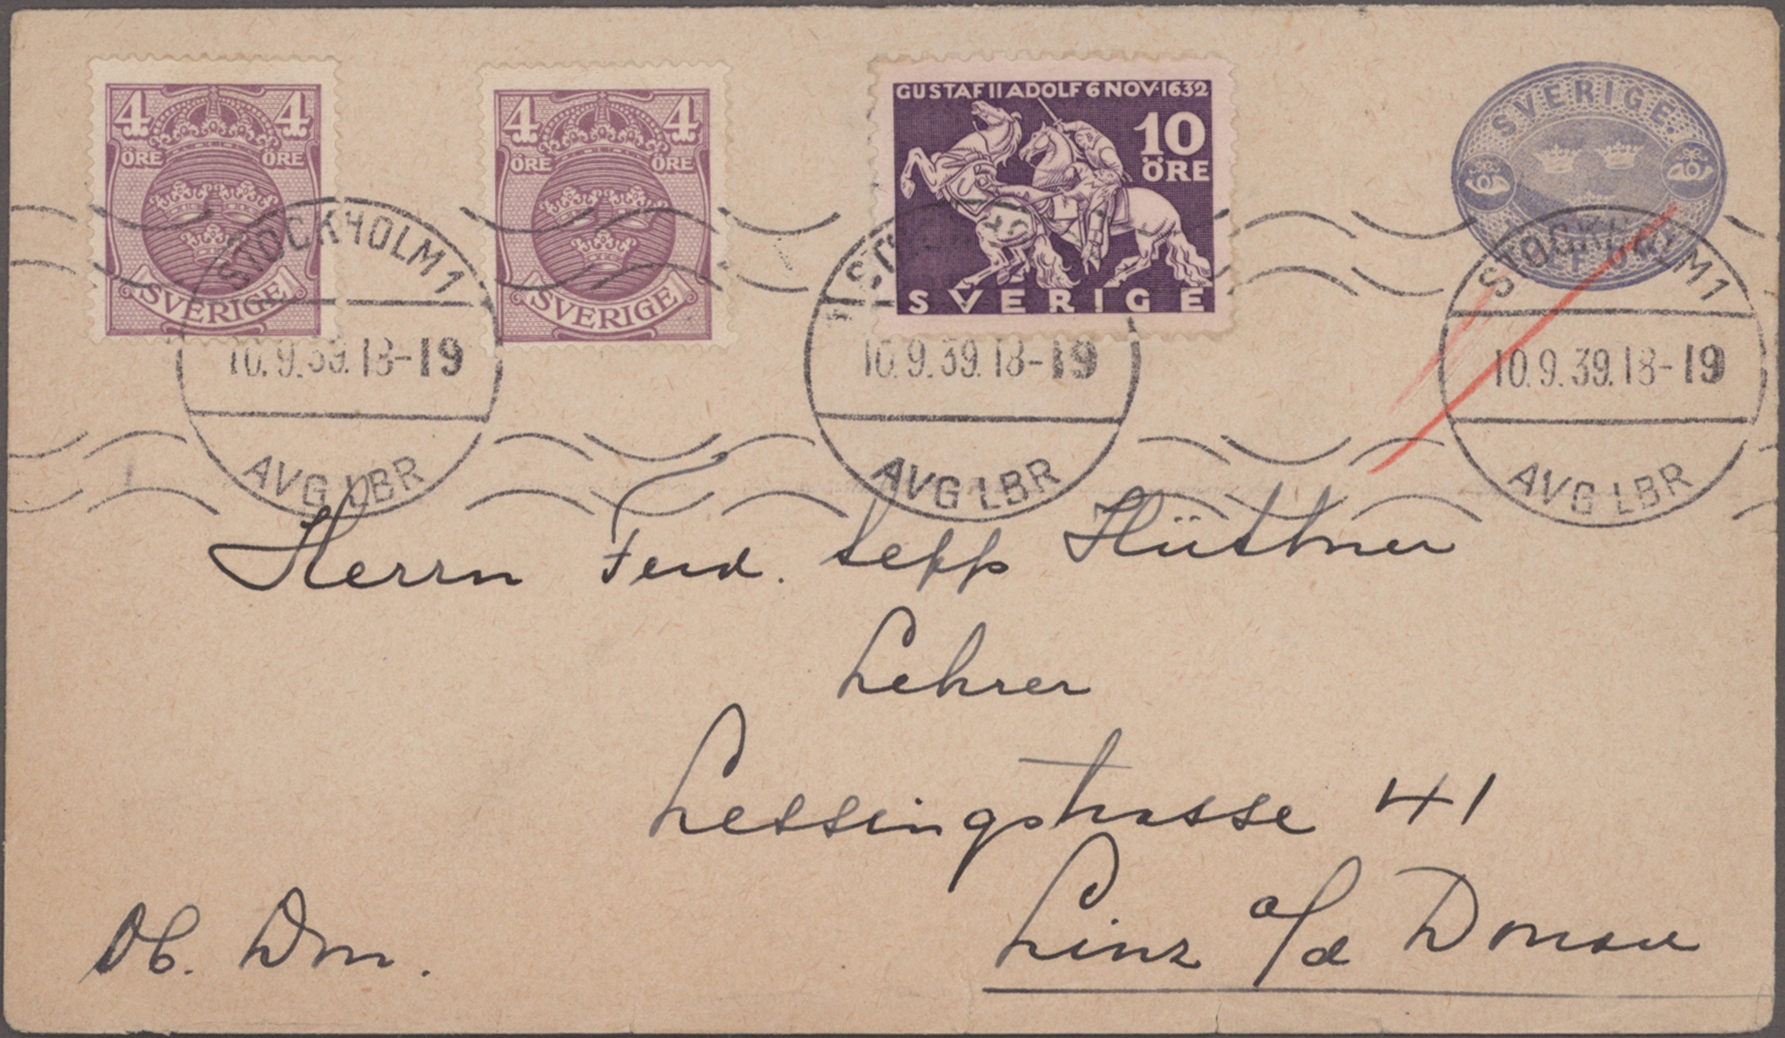 4 4
ÖRE ÖRE
SVERIGE
4 4
ÖRE ÖRE
SVERIGE
GUSTAF II ADOLF 6 NOV·1632
10
ÖRE
SVERIGE
SVERIGE
STOCKHOLM 1
10.9.39.18-19
AVG LBR
10.9.39.18-19
AVG LBR
STOCKHOLM 1
10.9.39.18-19
AVG LBR
Herrn Ferd. Sepp Hüttner
Lehrer
Lessingstrasse 41
Linz a/d Donau